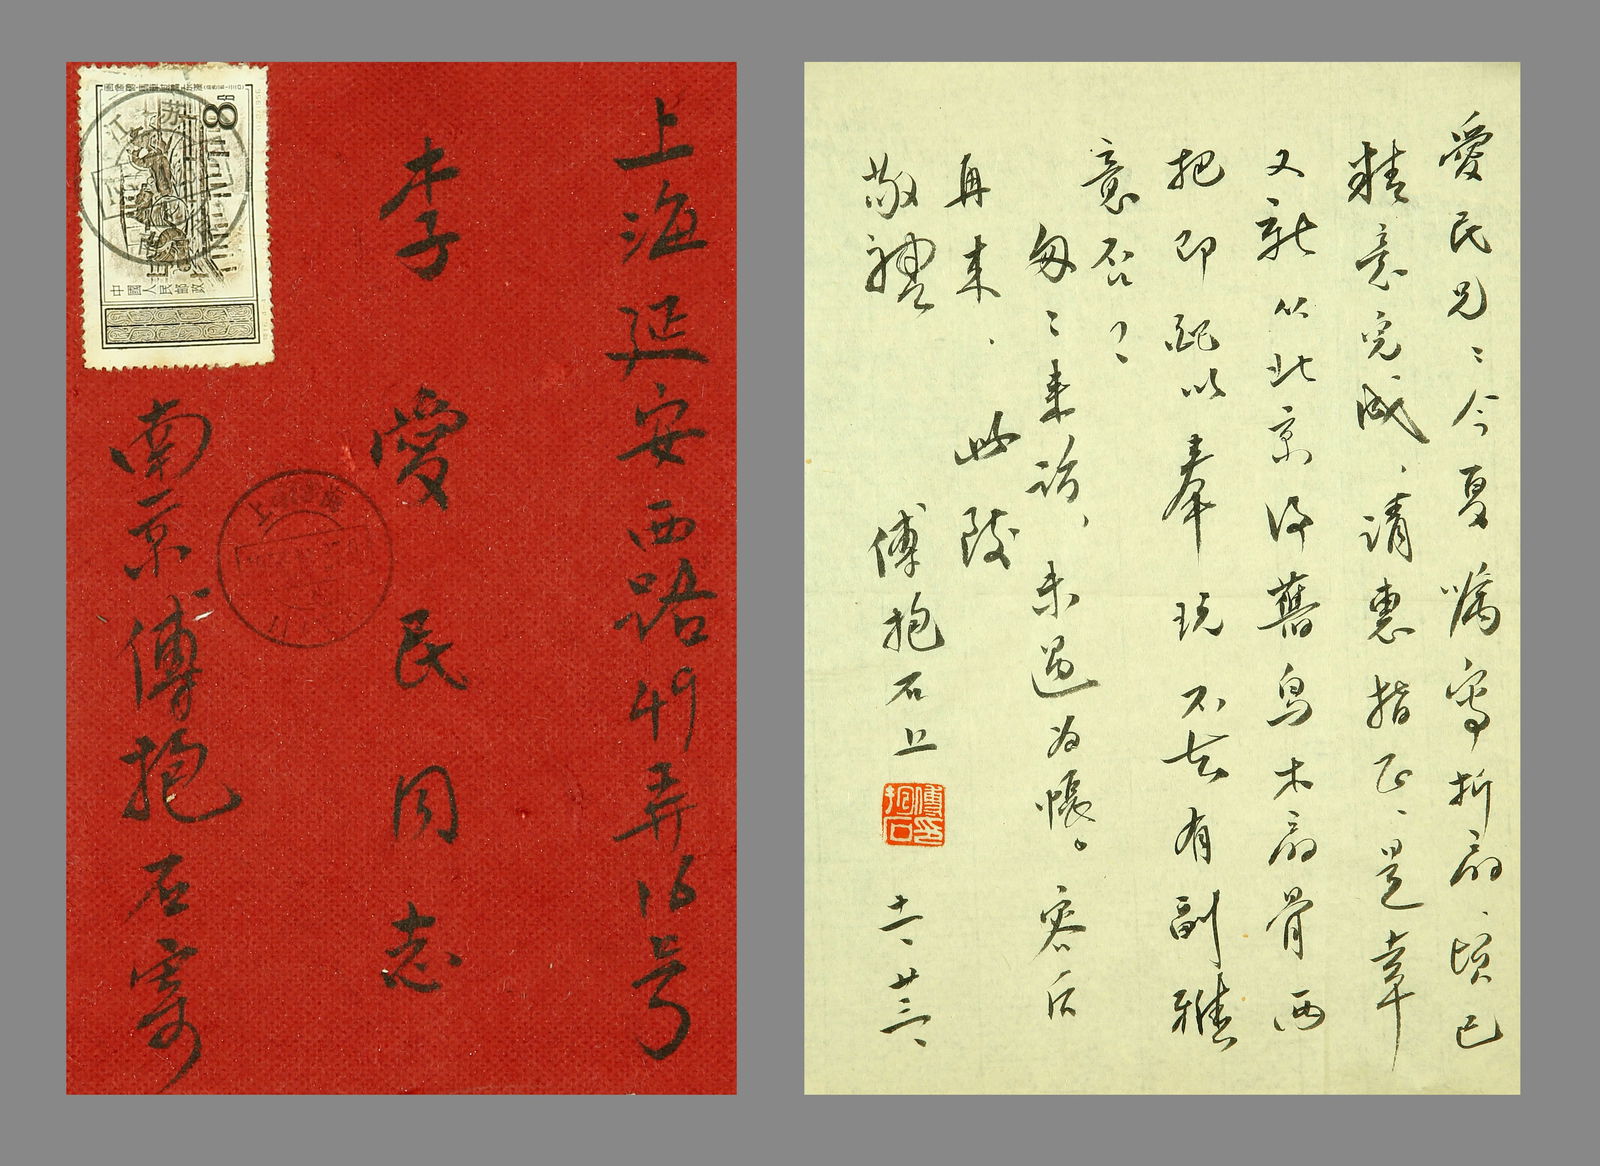 上海延安西路49弄16号
李愛民同志
南京傅抱石寄
8
中國人民邮政
江苏
上海
愛民兄：今夏嘱写折扇、顷已
精意完成、请惠指正、是幸
又新从北京得舊鳥木扇骨两
把即配以奉玩不知有副雅
意否？
匆：来访、未遇为怅。容后
再来．此致
敬禮
傅抱石上
傅抱石印
十一、廿三、